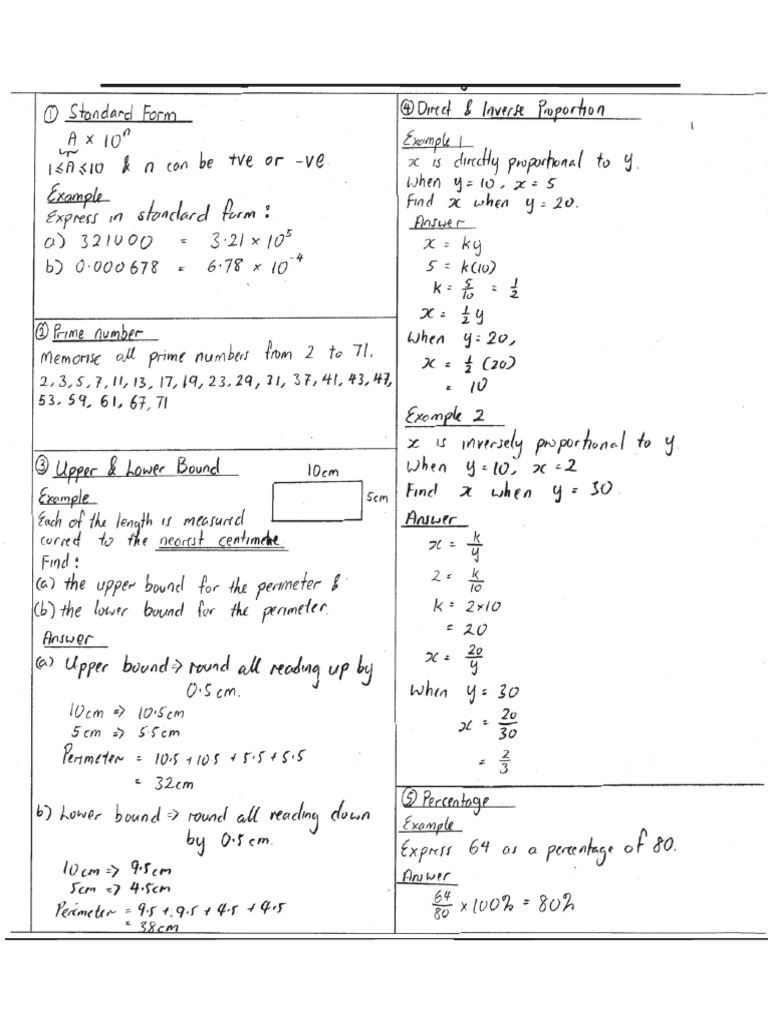 ① Standard Form
A × 10ⁿ
1≤A≤10 & n can be +ve or -ve
Example
Express in standard form :
a) 321000 = 3.21 × 10⁵
b) 0.000678 = 6.78 × 10⁻⁴
② Prime number
Memorise all prime numbers from 2 to 71.
2, 3, 5, 7, 11, 13, 17, 19, 23, 29, 31, 37, 41, 43, 47,
53, 59, 61, 67, 71
③ Upper & Lower Bound
10cm
5cm
Example
Each of the length is measured
correct to the nearest centimetre
Find :
(a) the upper bound for the perimeter &
(b) the lower bound for the perimeter.
Answer
(a) Upper bound ⇒ round all reading up by
0.5 cm.
10cm ⇒ 10.5cm
5cm ⇒ 5.5cm
Perimeter = 10.5 + 10.5 + 5.5 + 5.5
= 32cm
b) Lower bound ⇒ round all reading down
by 0.5 cm.
10cm ⇒ 9.5cm
5cm ⇒ 4.5cm
Perimeter = 9.5 + 9.5 + 4.5 + 4.5
= 38cm
④ Direct & Inverse Proportion
1
Example 1
x is directly proportional to y.
When y = 10, x = 5
Find x when y = 20.
Answer
x = ky
5 = k(10)
k = 5/10 = 1/2
x = 1/2 y
When y = 20,
x = 1/2 (20)
= 10
Example 2
x is inversely proportional to y.
When y = 10, x = 2
Find x when y = 30
Answer
x = k/y
2 = k/10
k = 2×10
= 20
x = 20/y
When y = 30
x = 20/30
= 2/3
⑤ Percentage
Example
Express 64 as a percentage of 80.
Answer
64/80 × 100% = 80%